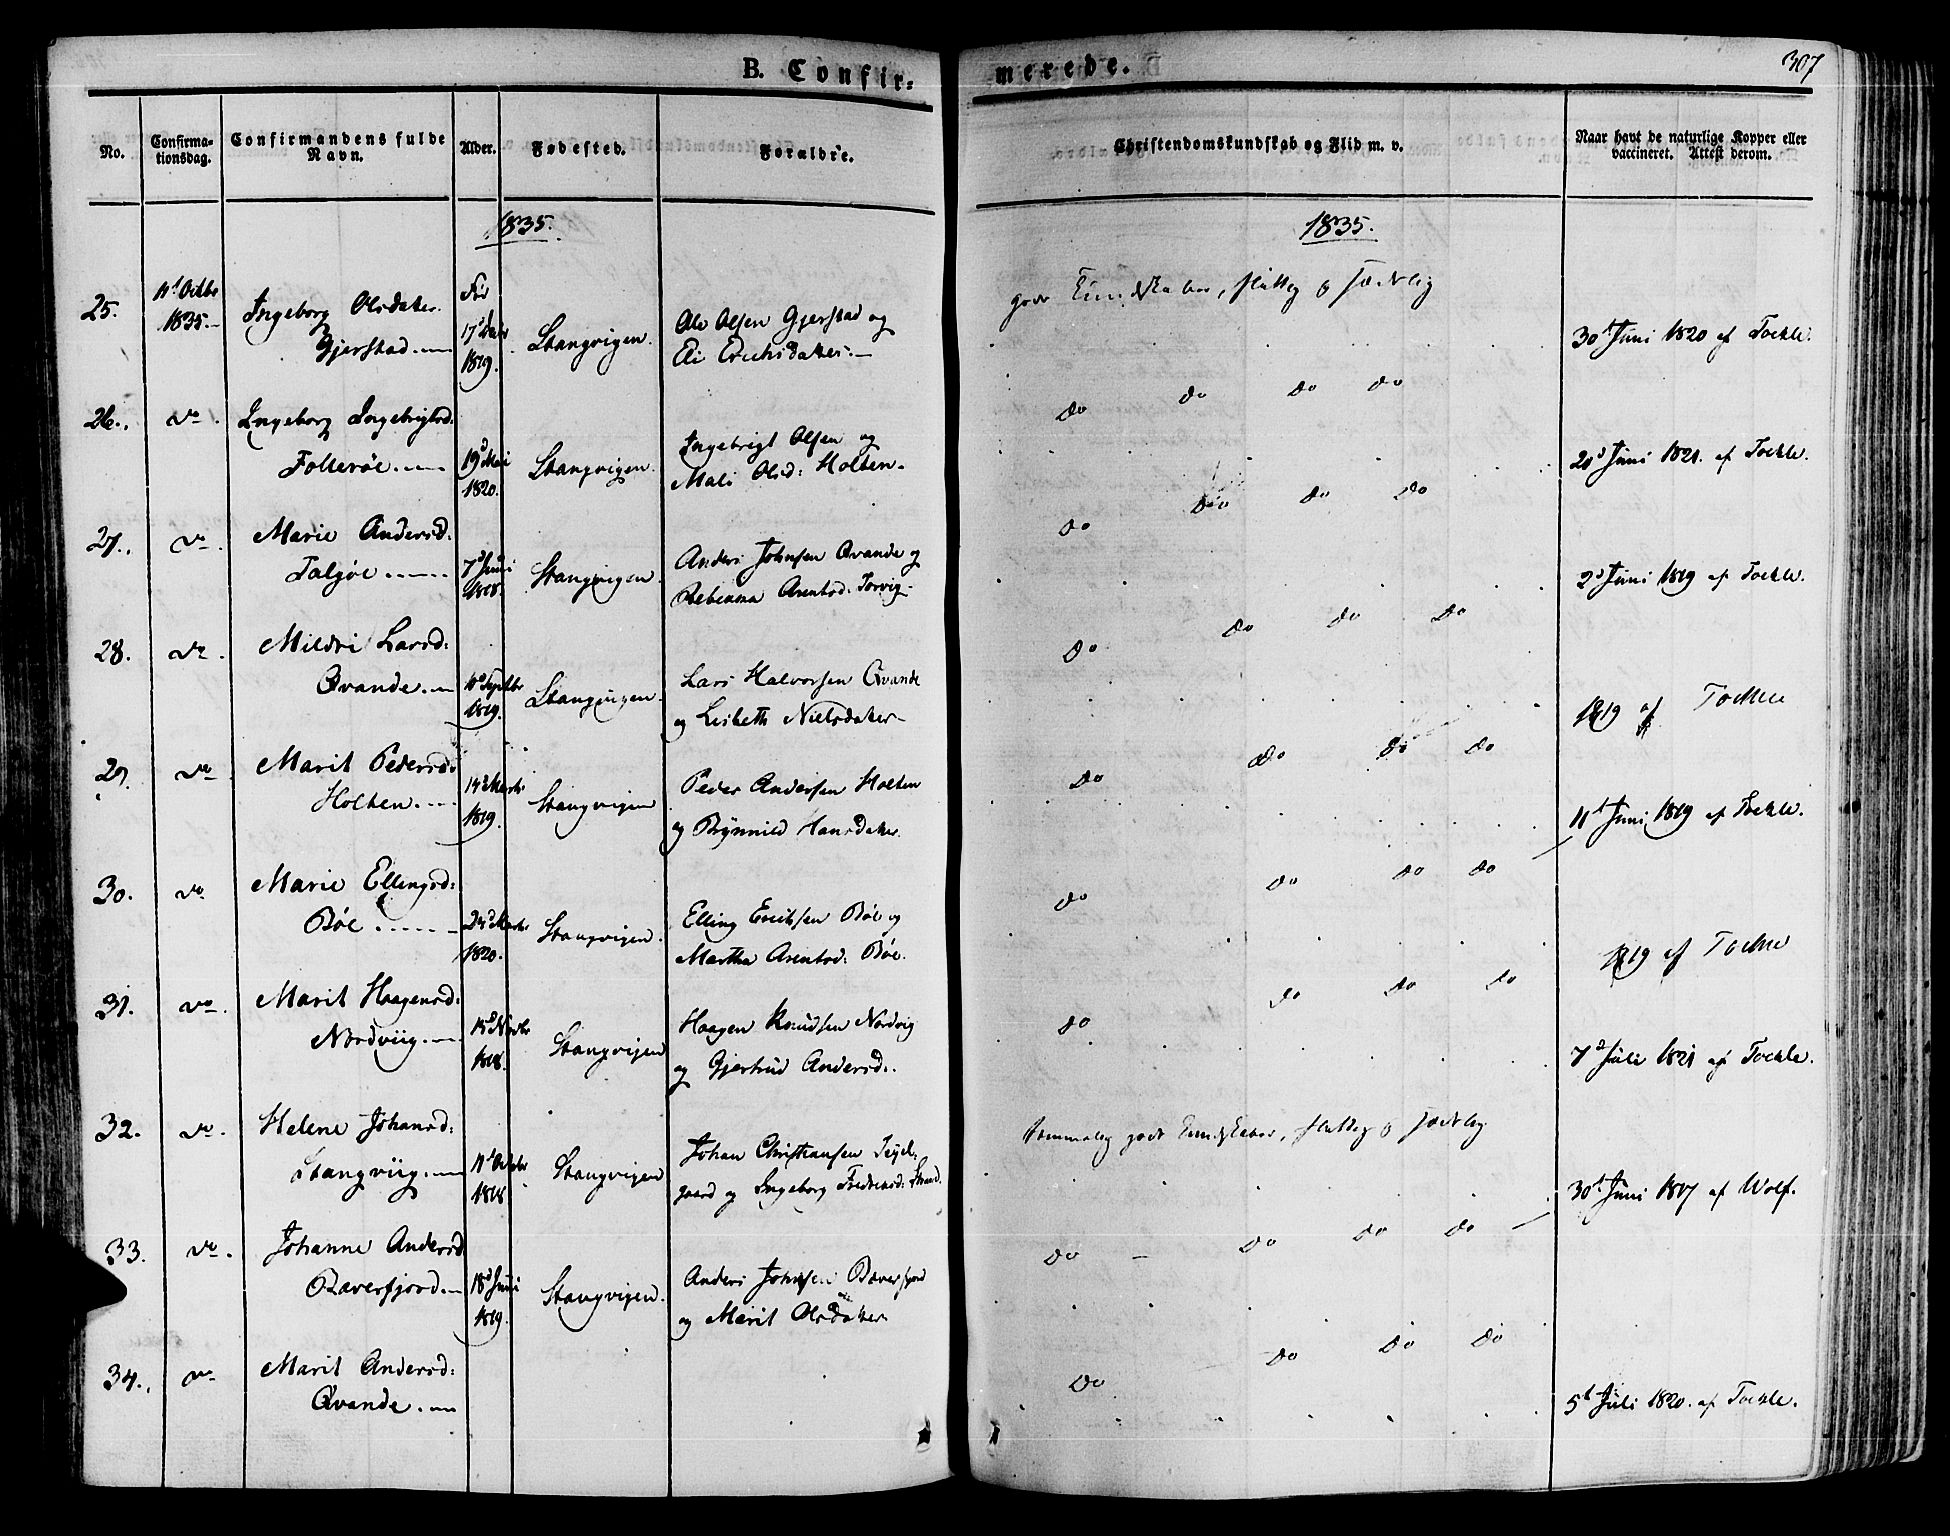 B. Confir=
merede.
307
No.
Confirma-
tionsdag.
Confirmandens fulde
Navn.
Alder.
Fødested.
Forældre.
Christendomskundskab og Flid m. v.
Naar havt de naturlige Kopper eller
vaccineret. Attest derom.
1835.
1835.
25.
11t Octbr
1835.
Ingeborg Olsdater
Gjerstad.
Fød
1819.
Stangvigen.
Ole Olsen Gjerstad og
Eli Erichsdater.
gode Kundskaber, flittig og sædelig
30t Juni 1820 af Tockle.
26.
do.
Ingeborg Ingebrigtsd:
Folkerøe.
19d Mai
1820.
Stangvigen.
Ingebrigt Olsen og
Mali Olsd: Holten.
do do do do
21d Juni 1821. af Tockle.
27.
do.
Marie Andersd.
Talgøe
7d Juni
1818.
Stangvigen.
Anders Johnsen Qvande og
Rebecca Arentsd. Torvig
do do do do
2d Juni 1819 af Tockle.
28.
do.
Mildri Larsd:
Qvande.
10d Septbr
1819.
Stangvigen.
Lars Halvorsen Qvande
og Lisbeth Nielsdater
do do do do
1819 af Tockle
29.
do
Marit Pedersd:
Holten.
14d Marts
1819.
Stangvigen
Peder Andersen Holten
og Brynnild Hansdater.
do do do do
11t Juni 1819 af Tockle.
30.
do
Marie Ellingsd:
Bøe
24d Marts
1820.
Stangvigen.
Elling Erichsen Bøe og
Martha Arentsd: Bøe.
do do do do
1819 af Tockle
31.
do.
Marit Haagensd:
Nordviig.
15d Novbr
1818.
Stangvigen
Haagen Knudsen Nordvig
og Gjertrud Andersd.
do do do do
7d Juli 1821 af Tockle.
32.
do.
Helene Johansd:
Stangviig.
11t Octobr
1818
Stangvigen
Johan Christiansen Tejel-
gaard og Ingeborg Frederiksd: Strand.
temmelig gode Kundskaber, flittig og sædelig
30t Juni 1817 af Wolf.
33.
do.
Johanne Andersd
Bæverfjord.
18d Juni
1819.
Stangvigen.
Anders Johnsen Bæverfjord
og Marit Olsdater
do do do do
34.
do
Marit Andersd:
Qvande.
do do do do
5t Juli 1820. af Tockle.